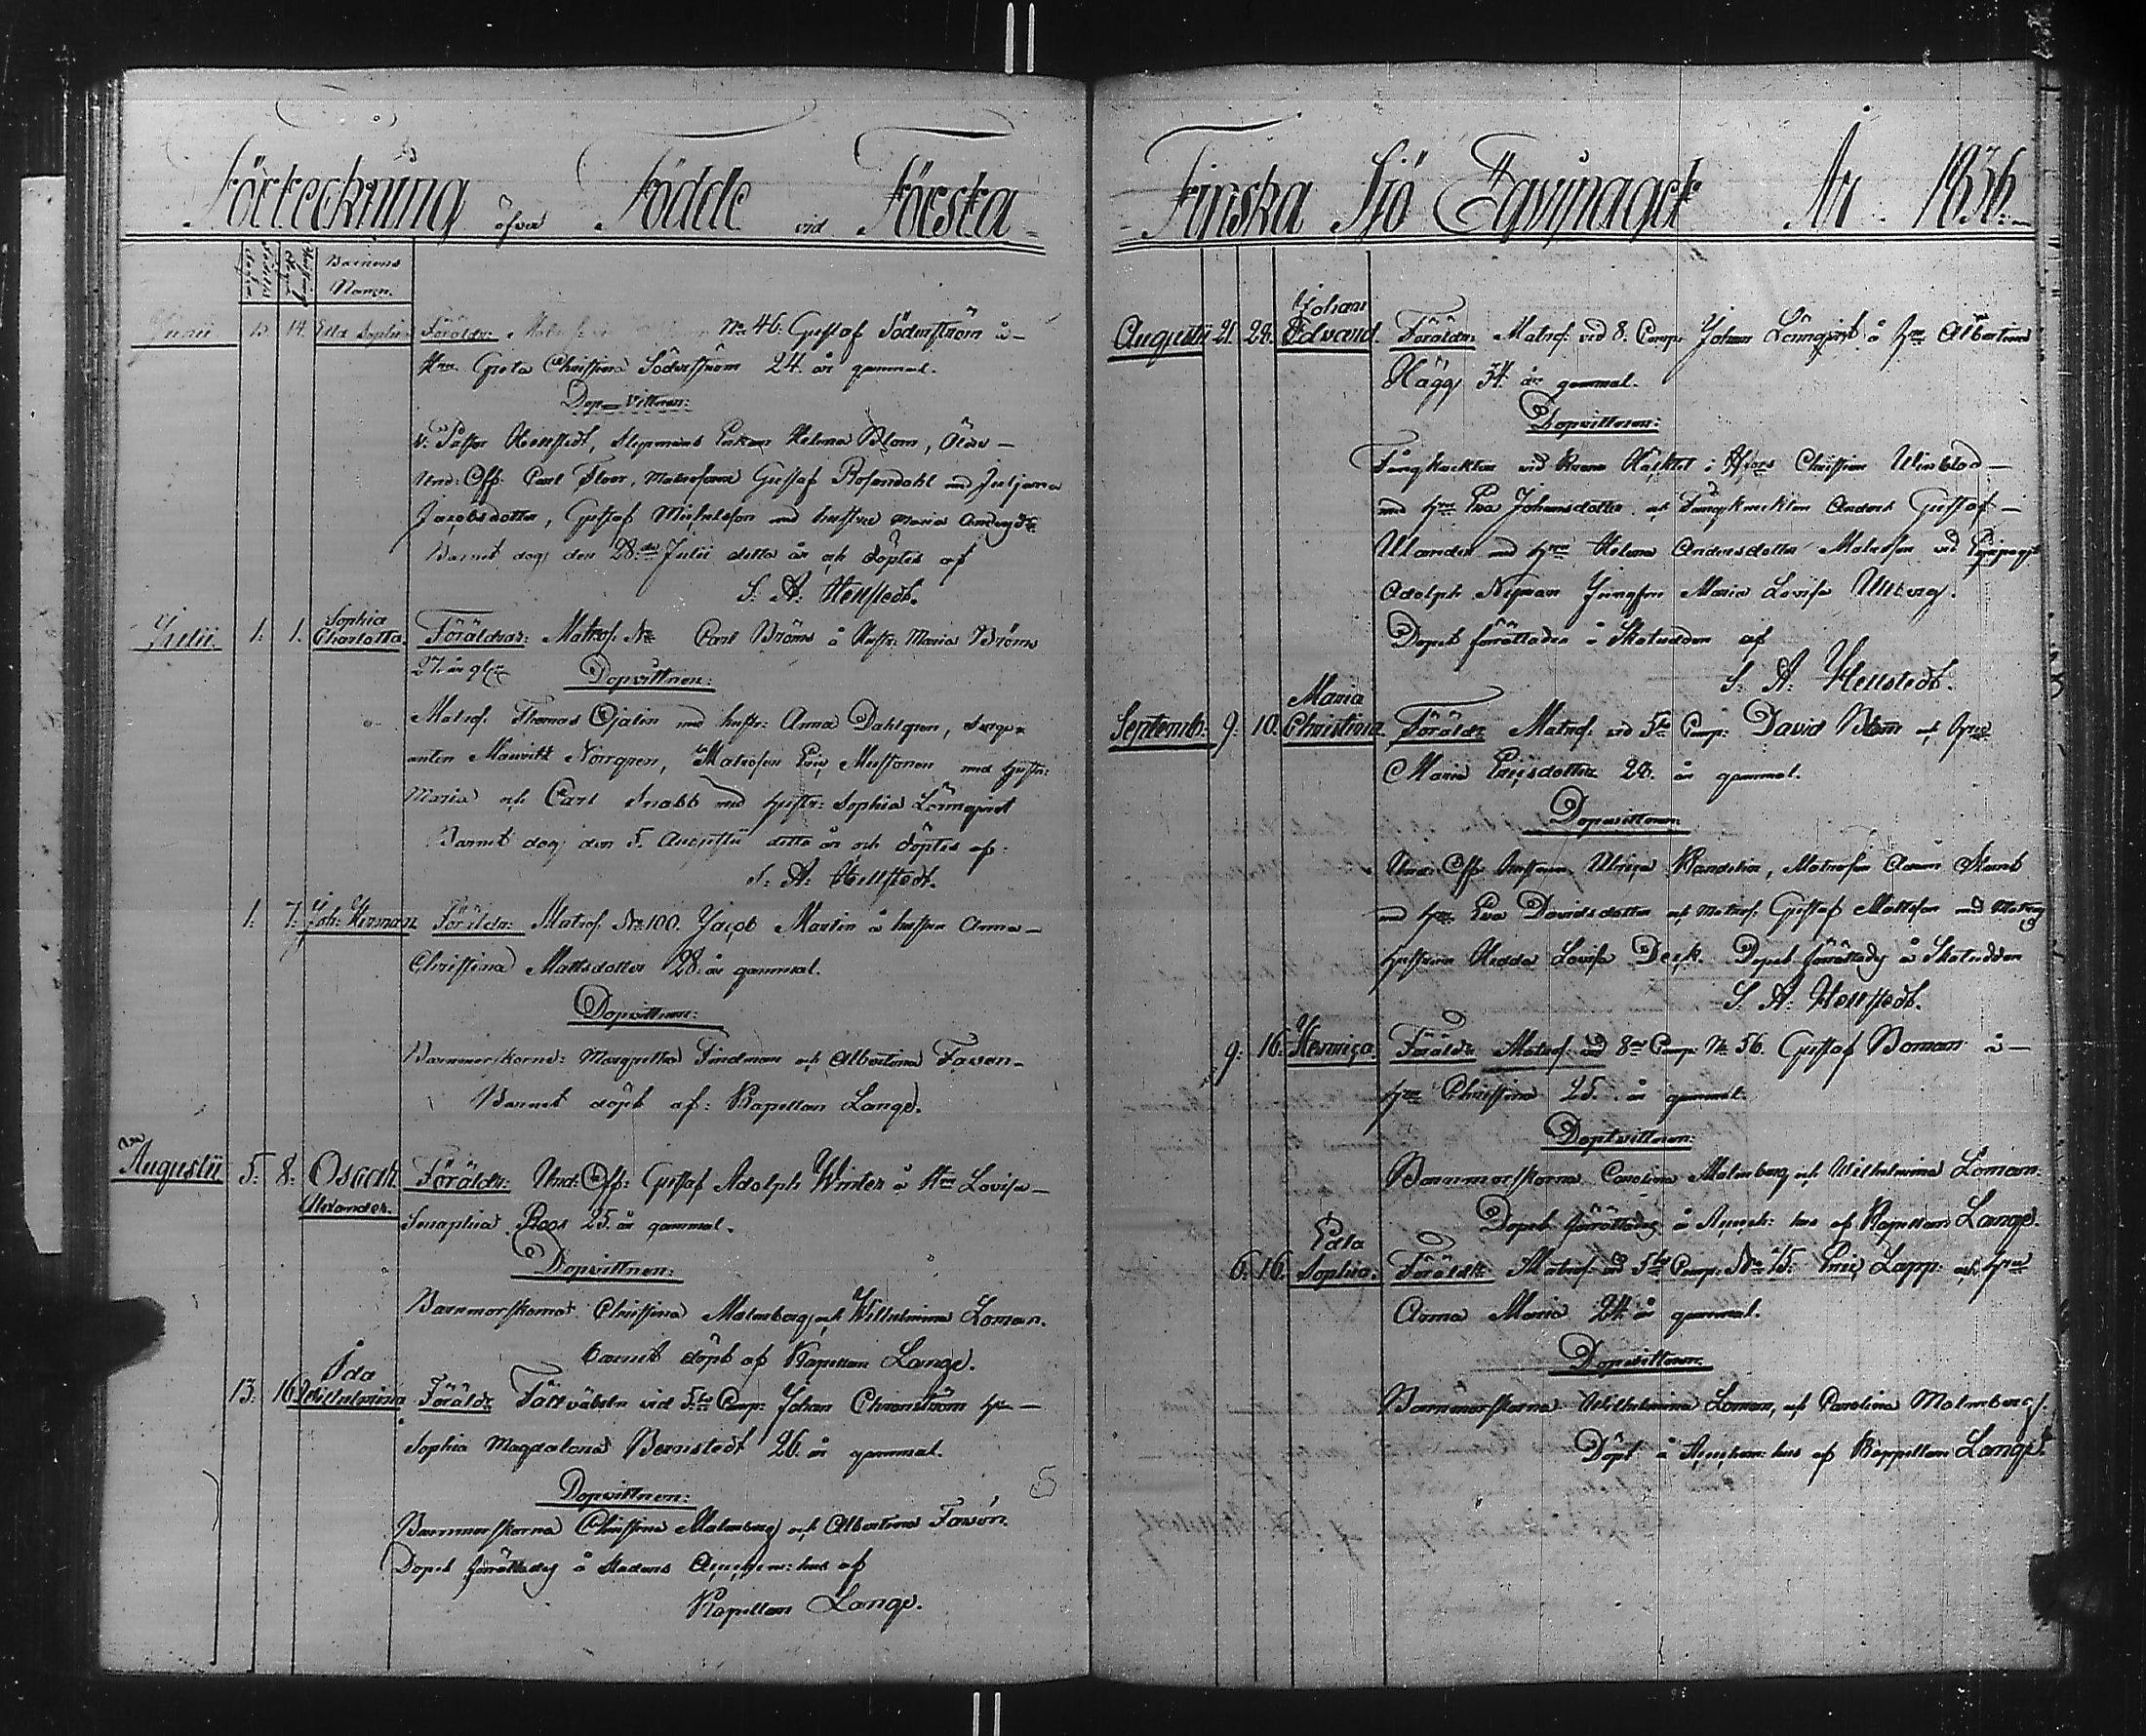 Förteckning öfver Födde vid Första
Födelse dagen
Christnings dagen
Barnens Namn.
Junii 13. 14. Edla Sophia Föräldr: Matros No 46. Gustaf Söderström å
Hru Greta Christina Söderström 24. år gammal.
Dop-vittnen:
V. Pastor Hellstedt, Helena Blom,
Und: Off. Carl Floor, Matrosarne Gustaf Rosendahl med Juljana
Jacobsdotter, Gustaf Michelsson med hustru Maria
Barnet dog den 28:de Julii detta år och döptes af
S. A. Hellstedt.
Julii. 1. 1. Sophia Charlotta. Föräldrar: Matros. No Carl Bröms å Hustr: Maria Bröms
27. år gl
Dopvittnen:
Matros. Thomas Ojalin med hustr: Anna Dahlgren, Serge-
anten Mauritz Norrgren, Matrosen Eric Mustonen med hustr:
Maria och Carl Snabb med hustr: Sophia Lönnqvist
Barnet dog den 5. Augustii detta år och döptes af:
S. A. Hellstedt.
1. 7. Joh: Herman Föräldr: Matros. No 100. Jacob Martin å hustru Anna
Christina Mattsdotter 28. år gammal.
Dopvittnen:
Barnmorskorna: Margretha Findman och Albertina Fasen
Barnet döpt af: Kapellan Lange.
Augustii 5. 8. Oscar Alexander. Föräldr: Und: Off: Gustaf Adolph Winter å Hru Lovisa
Seraphia Roos 25. år gammal.
Dopvittnen:
Barnmorskorna Christina Malmberg och Wilhelmina Loman.
barnet döpt af Kapellan Lange.
13. 16. Ida Wilhelmina Föräldr: Fältväbeln vid 5:te Comp: Johan Chronström hru
Sophia Magdalena Bernstedt 26. år gammal.
Dopvittnen:
Barnmorskorna Christina Malmberg och Albertina Fasén.
Dopet förrättades å Stadens hus af
Kapellan Lange.
Finska Sjö Eqvipaget År 1836.
Augustii 21. 28. Johan Edvard. Föräldr: Matros. vid 8. Comp: Johan Lönnqvist å hru Albertina
Hägg 34. år gammal.
Dopvittnen:
Fångknekten vid Krono Häktet i Hfors Christian Winblad
med hru Eva Johansdotter och Fångknekten Anders Gustaf
Ulander med hru Helena Andersdotter Matrosen vid Eqvipaget
Adolph Nyman Jungfru Maria Lovisa Ullberg.
Dopet förrättades å Skatudden af
S. A. Hellstedt.
Septemb. 9. 10. Maria Christina Föräldr: Matros. vid 5te Comp: David Blom och hru
Maria Ericsdotter 28. år gammal.
Dopvittnen
Und: Off: hustrun Ulrica Randelin, Matrosen
med hru Eva Davidsdotter och Matros. Gustaf Mattsson med Matros
hustrun Hedda Lovisa Deck. Dopet förrättades å Skatudden
S. A. Hellstedt.
9. 16. Henrica. Föräldr: Matros. vid 8de Comp. No 56. Gustaf Boman å
hru Christina 25. år gammal.
Doptvittnen:
Barnmorskorna Carolina Malmberg och Wilhelmina Loman.
Dopet förrättades å hus af Kapellan Lange.
6. 16. Edla Sophia. Föräldr: Matros. vid 5te Comp. No 15. Eric Lapp och hru
Anna Maria 24. år gammal.
Dopvittnen
Barnmorskorna Wilhelmina Loman, och Carolina Malmberg.
Döpt å hus af Kappellan Lange.